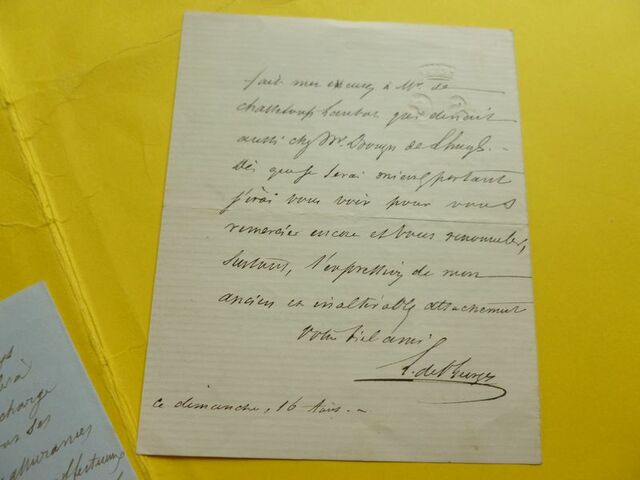 fait mes excuses à Mr. de
Chasseloup Laubat qui dinait
aussi chez Mr. Drouyn de Lhuys. -
Dès que je serai mieux portant
j'irai vous voir pour vous
remercier encore et vous renouveler,
surtout, l'expression de mon
ancien et inaltérable attachement
Votre viel ami
de St Georges
ce dimanche, 16 Août. -
charge
ses